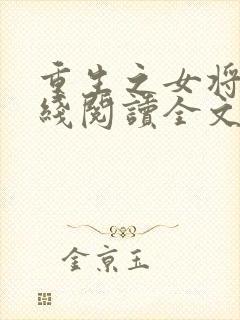 重生之女将
綫閱讀全文
金京玉